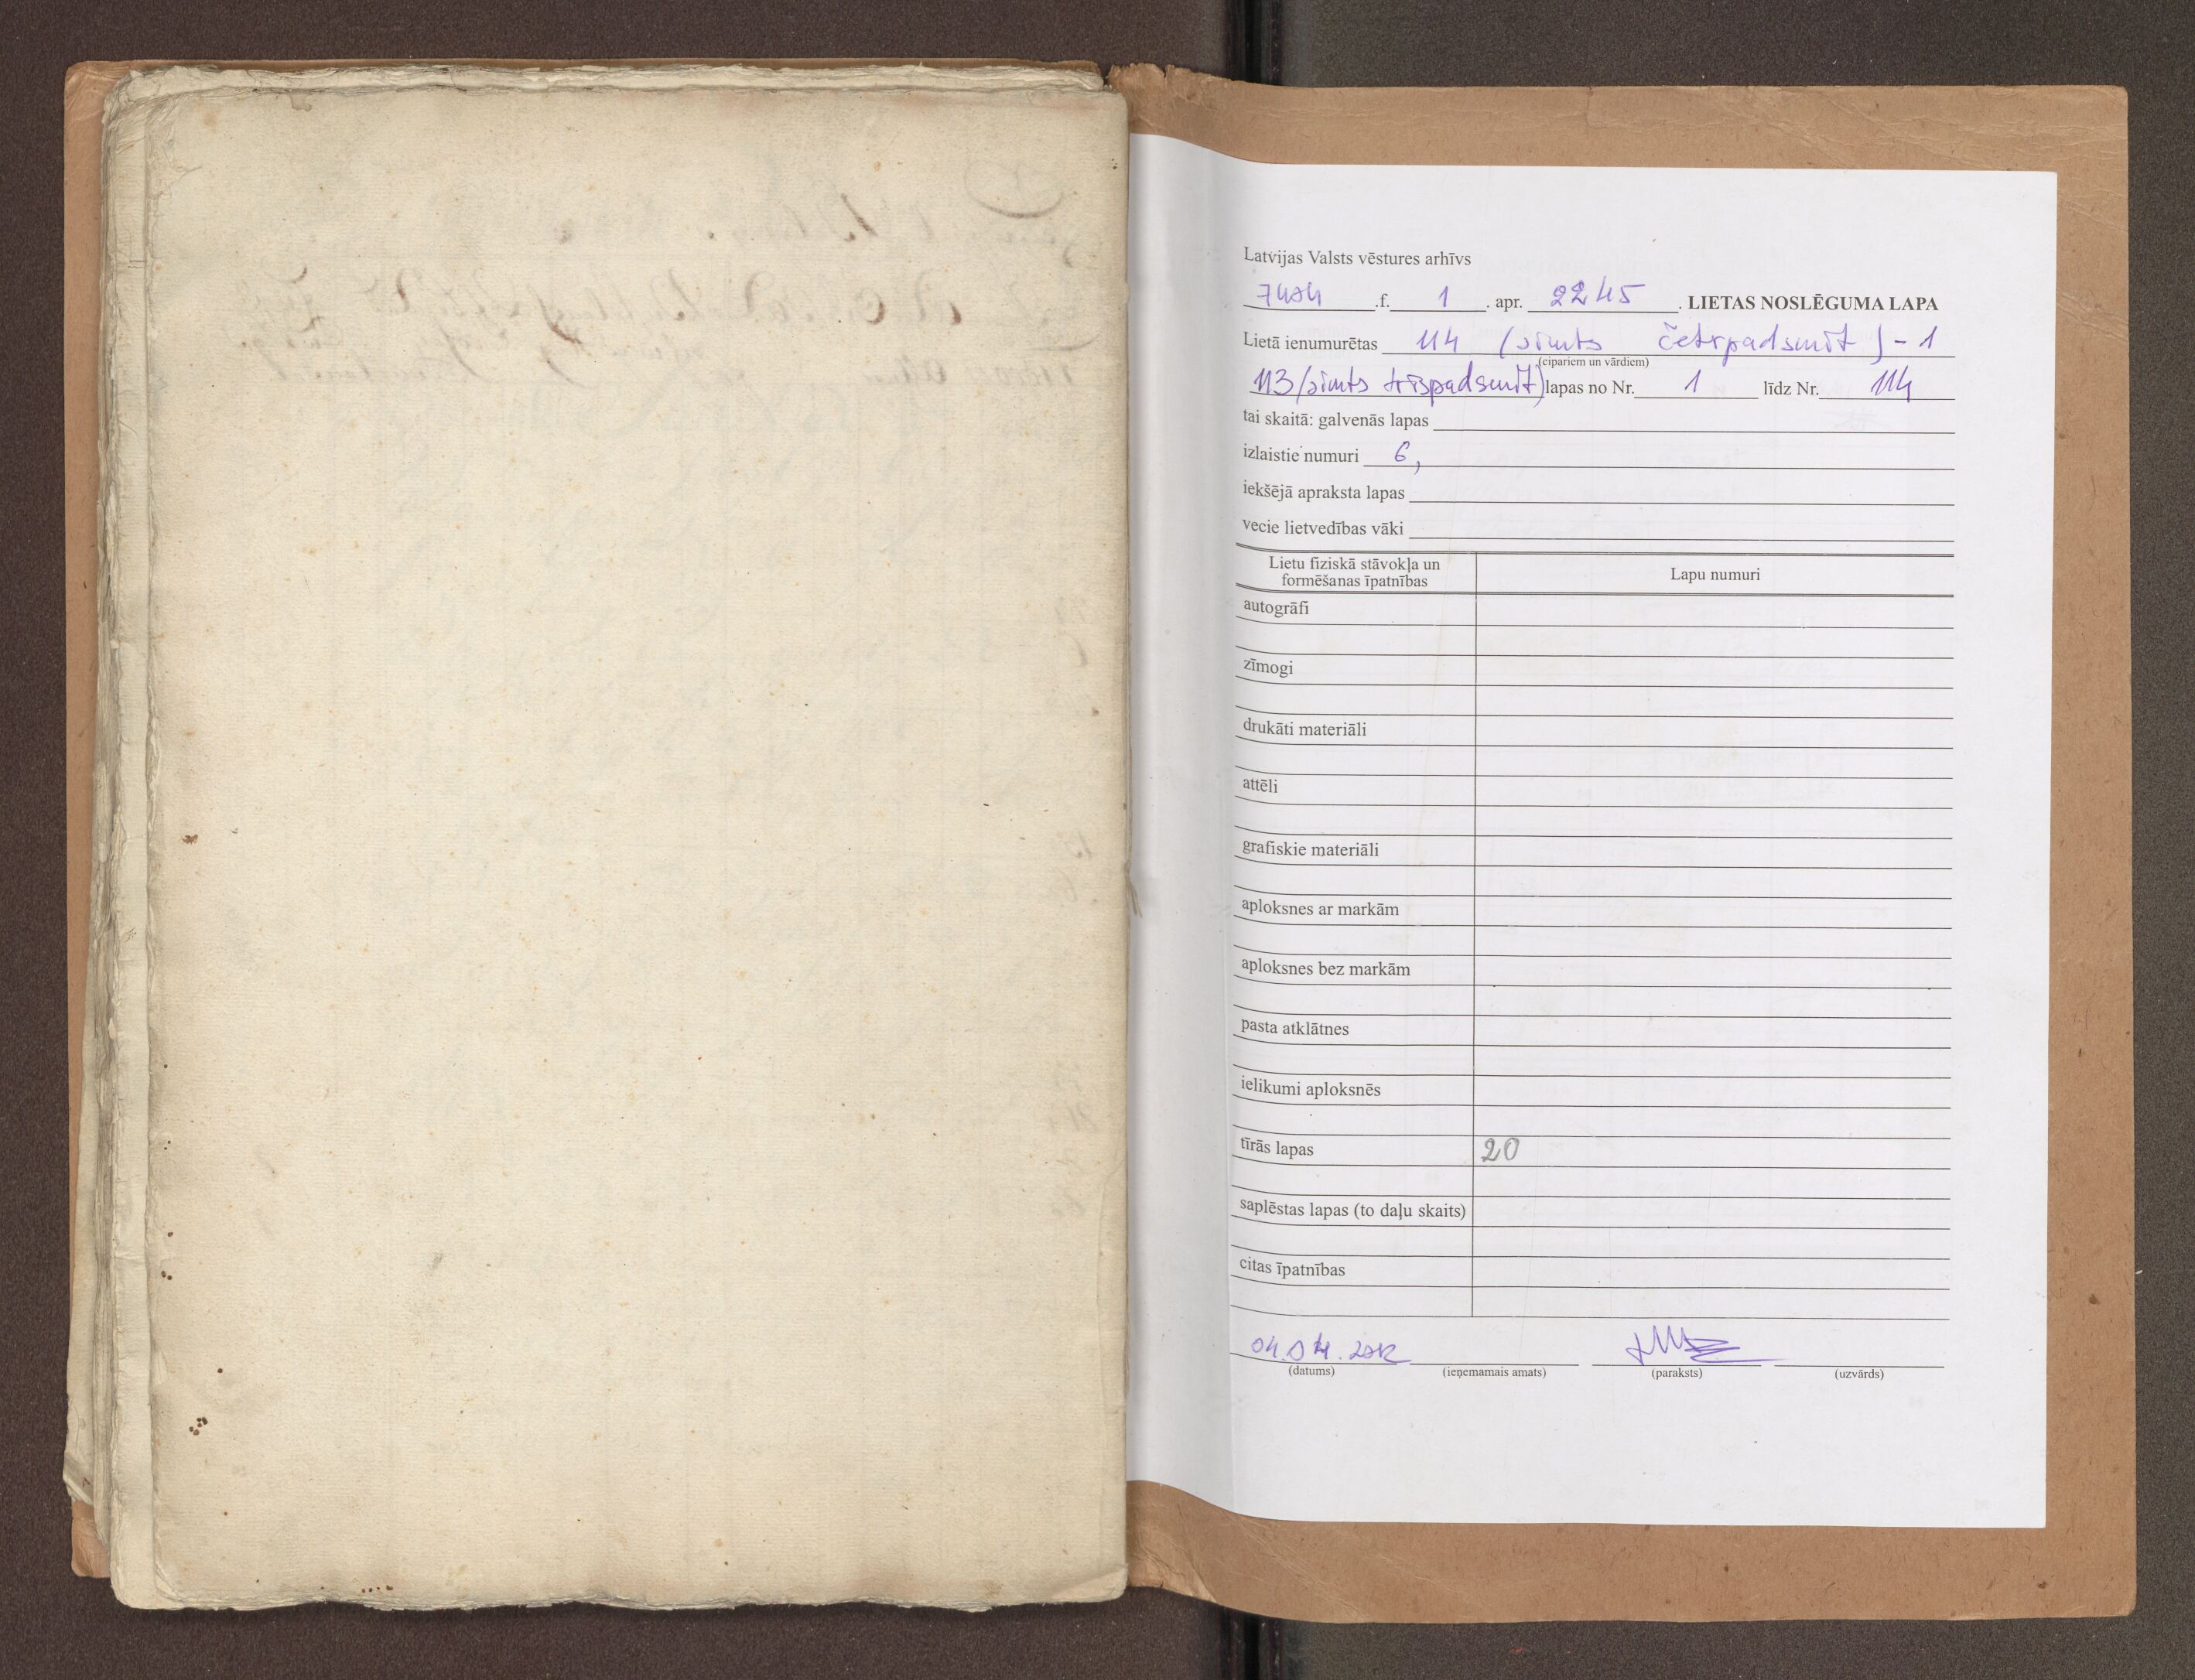 Latvijas Valsts vēstures arhīvs
7404 .f. 1 . apr. 2245 . LIETAS NOSLĒGUMA LAPA
Lietā ienumurētas 114 (simts četrpadsmit) - 1
(cipariem un vārdiem)
113 (simts trīspadsmit) lapas no Nr. 1 līdz Nr. 114
tai skaitā: galvenās lapas
izlaistie numuri 6,
iekšējā apraksta lapas
vecie lietvedības vāki
Lietu fiziskā stāvokļa un formēšanas īpatnības
Lapu numuri
autogrāfi
zīmogi
drukāti materiāli
attēli
grafiskie materiāli
aploksnes ar markām
aploksnes bez markām
pasta atklātnes
ielikumi aploksnēs
tīrās lapas 20
saplēstas lapas (to daļu skaits)
citas īpatnības
04.04.2012
(datums) (ieņemamais amats) (paraksts) (uzvārds)